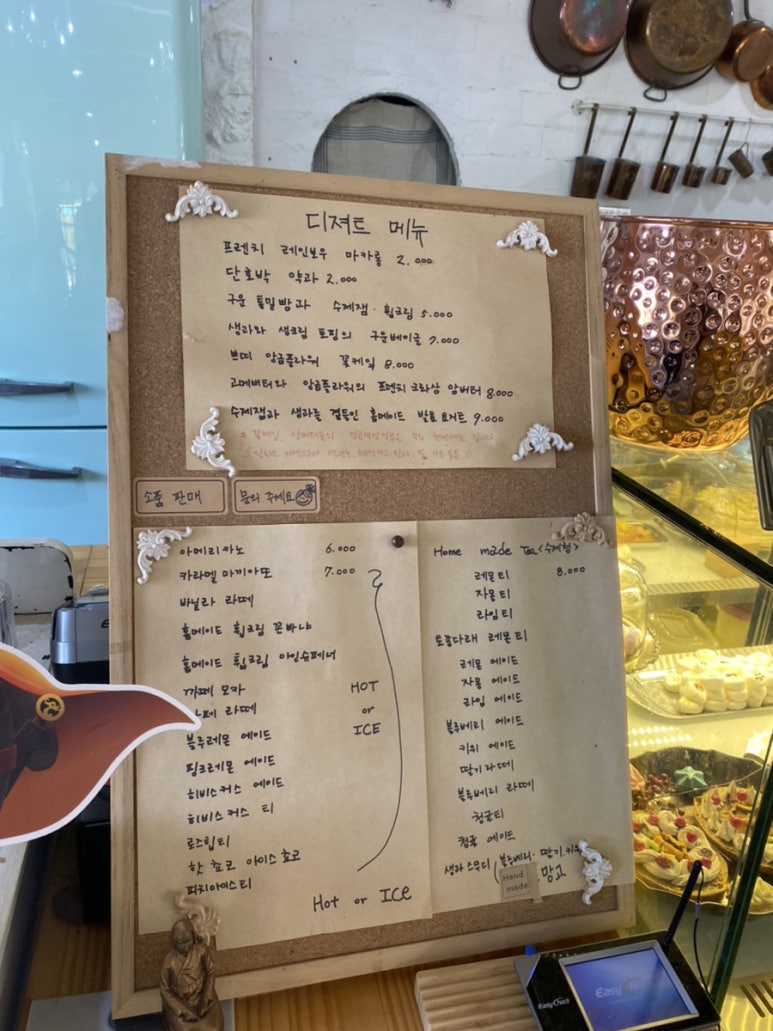 디져트 메뉴
프렌치 레인보우 마카롱 2.000
단호박 약과 2.000
구운 통밀빵과 수제잼·휩크림 5.000
생과와 생크림 토핑의 구운베이글 7.000
쁘띠 앙금플라워 꽃케잌 8.000
고메버터와 앙금플라워의 프렌치 크라상 앙버터 8.000
수제잼과 생과를 곁들인 홈메이드 발효 요거트 9.000
소품 판매
문의 주세요
아메리카노 6.000
카라멜 마끼아또 7.000
바닐라 라떼
홈메이드 휩크림 꼰바냐
홈메이드 휩크림 아인슈페너
까페 모카 HOT
라떼 or
블루레몬 에이드 ICE
핑크레몬 에이드
히비스커스 에이드
히비스커스 티
로즈힙티
핫 쵸코 아이스 쵸코
피치아이스티
Hot or ICE
Home made Tea <수제청>
레몬티 8.000
자몽티
라임티
토종다래 레몬티
레몬 에이드
자몽 에이드
라임 에이드
블루베리 에이드
키위 에이드
딸기라떼
블루베리 라떼
청귤티
청귤 에이드
생과 스무디 (블루베리·딸기.키위
망고
Hand made
EasyCheck
EasyCheck